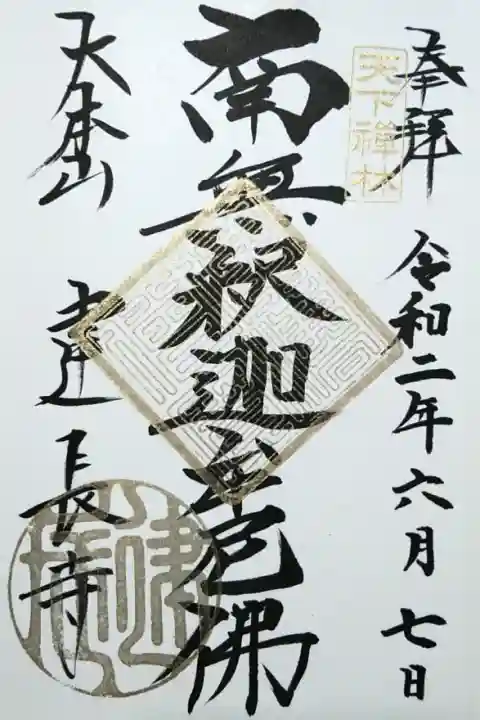 奉拜
天下禅林
令和二年六月七日
南無釈迦牟尼佛
大本山
建長寺